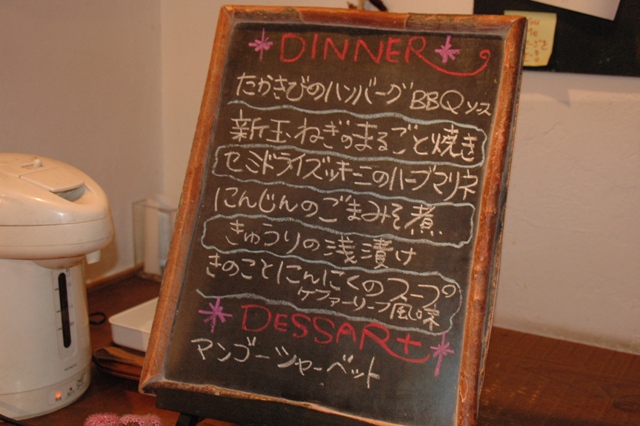 DINNER
たかきびのハンバーグ BBQソース
新玉ねぎのまるごと焼き
セミドライズッキーニのハーブマリネ
にんじんのごまみそ煮
きゅうりの浅漬け
きのことにんにくのスープの
ケファーリーフ風味
DESSART
マンゴーシャーベット